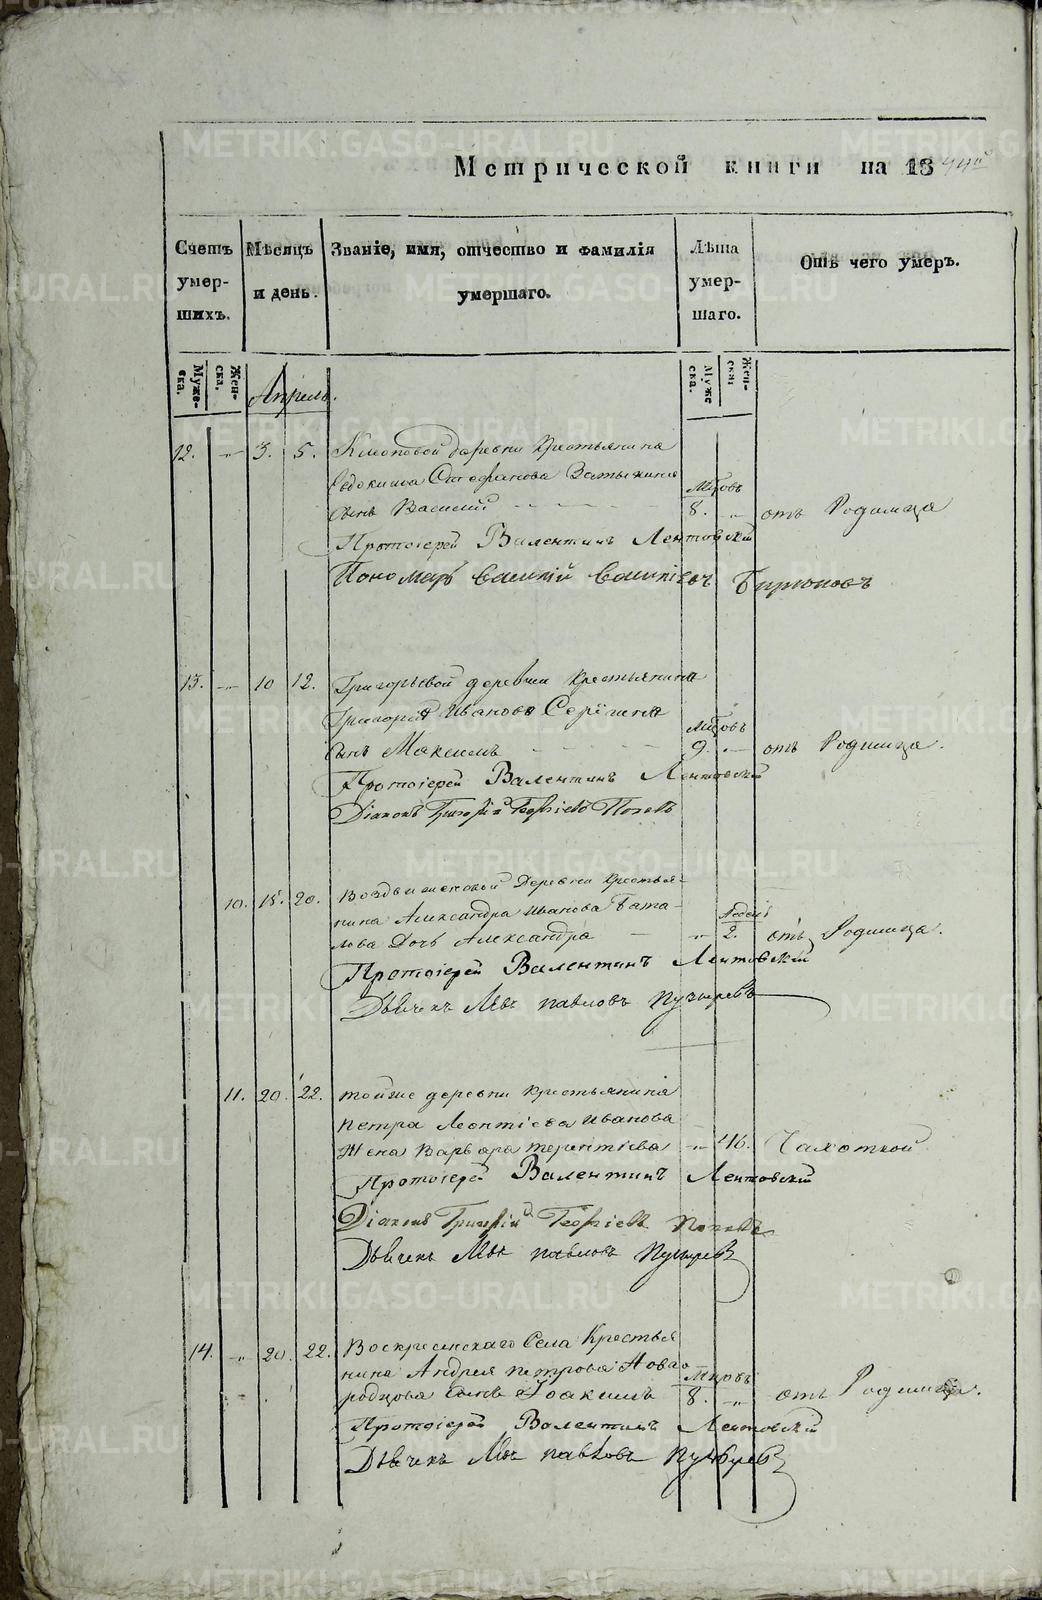 Метрической книги на 1844й
Счетъ умерших.
Мѣсяцъ и день.
Званіе, имя, отчество и фамилія умершаго.
Лѣта умершаго.
Отъ чего умеръ.
Мужеска.
Женска.
Мужеска.
Женска
Апрель.
12. „ 3. 5. деревни крестьянина
Стефанова
сынъ Василій 8. „ отъ Родимца
Протоіерей Валентинъ Лентовскій
Пономарь Василій Бирюковъ
13. „ 10 12. Григорьевой деревни крестьянина
Григорія Иванова Серёгина
сынъ Максимъ 9. „ отъ Родимца.
Протоіерей Валентинъ Лентовскій
Діаконъ Григорій Георгіевъ Поповъ
10. 18. 20. Воздвиженской деревни крестья-
нина Александра Иванова Бата-
лова Дочь Александра „ 2. отъ Родимца.
Протоіерей Валентинъ Лентовскій
Дьячекъ Павловъ Пузыревъ
11. 20. 22. тойже деревни крестьянина
Петра Леонтіева Иванова
Жена Варвара Терентіева „ 46. Чахоткой
Протоіерей Валентинъ Лентовскій
Діаконъ Григорій Георгіевъ Поповъ
Дьячекъ Павловъ Пузыревъ
14. „ 20. 22. Воскресенскаго Села Крестья
нина Андрея Петрова Новаго
родцова сынъ Іоакимъ 8. „ отъ Родимца.
Протоіерей Валентинъ Лентовскій
Дьячекъ Павловъ Пузыревъ
METRIKI.GASO-URAL.RU